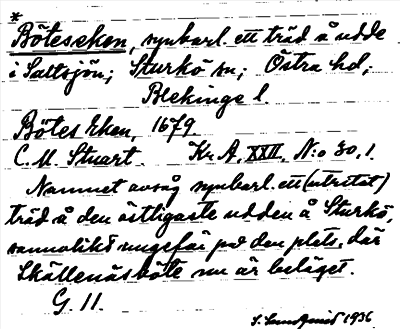 *
Böteseken, synbarl. ett träd å udde
i Saltsjön; Sturkö sn; Östra hd;
Blekinge l.
Bötes Eken, 1679.
C. M. Stuart. Kr. A. XXII, N:o 30, 1.
Namnet avsåg synbarl. ett (utritat)
träd å den östligaste udden å Sturkö,
sannolikt ungefär på den plats, där
Skällenäsböte nu är beläget.
G 11.
S. Lundqvist 1936